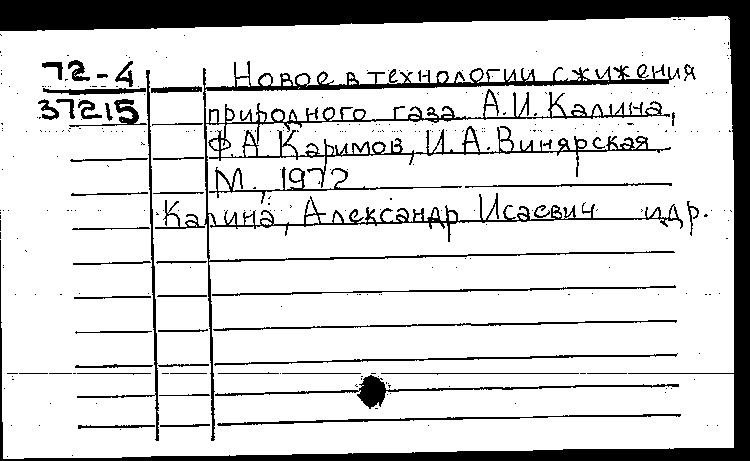 72-4 Новое в технологии сжижения
37215 природного газа А.И. Калина,
Ф.А. Каримов, И.А. Винярская.
М., 1972
Калина, Александр Исаевич и др.